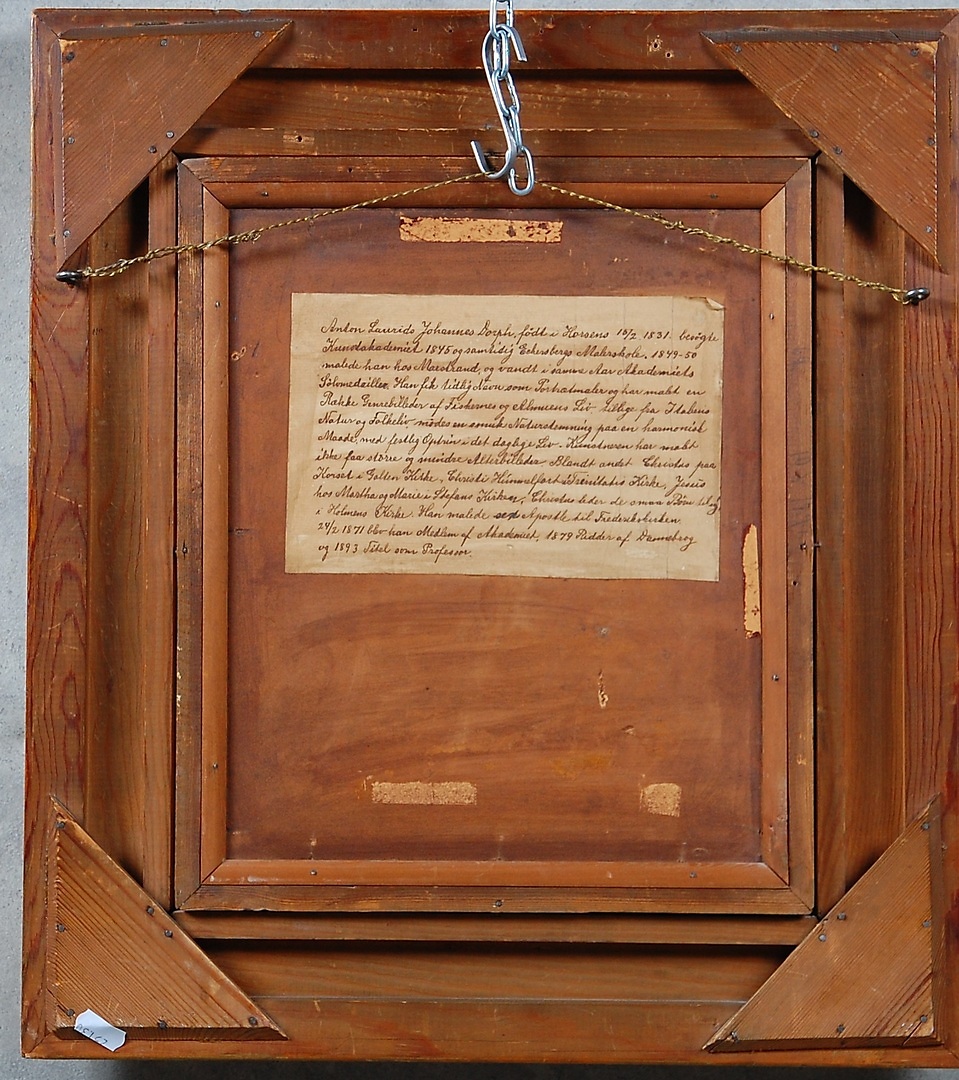 Anton Laurids Johannes Dorph, født i Horsens 15/2 1831. besøgte
Kunstakademiet 1845 og samtidig Eckersbergs Malerskole, 1849-50
malede han hos Marstrand, og vandt i samme Aar Akademiets
Sølvmedailler. Han fik tidlig Navn som Portrætmaler og har malt en
Række Genrebilleder af Fiskernes og Almuens Liv tillige fra Italiens
Natur og Folkeliv mødes en smuk Naturstemning paa en harmonisk
Maade, med festlig Optrin i det daglige Liv. Kunstneren har malt
ikke faa større og mindre Alterbilleder. Blandt andt Christus paa
Korset i Galten Kirke, Christi Himmelfart i Trinitatis Kirke, Jesus
hos Martha og Marie i Stefans Kirken, Christus leder de smaa Børn til sig
i Holmens Kirke. Han malede sex Apostle til Frederikskirken.
24/2 1871 blev han Medlem af Akademiet, 1879 Ridder af Dannebrog
og 1893 Titel som Professor.